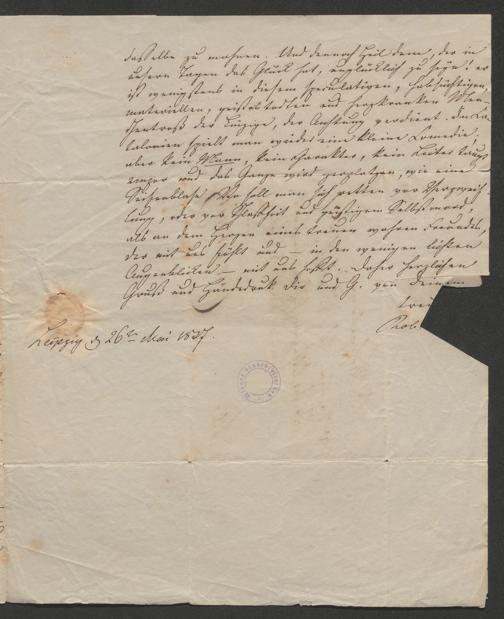 dasselbe zu machen. Und dennoch Heil dem, der in
unseren Tagen das Glück hat, unglücklich zu sein! er
ist wenigstens in diesem spekulativen, habsüchtigen,
materiellen, geistestodten und herzkranken Men-
schentroß der Einzige, der Achtung verdient. In
Catalonien spielt man wieder eine kleine Comedie;
aber kein Mann, kein Charakter, kein
und das Ganze wird zerplatzen, wie eine
Seifenblase. Wo soll man sich retten vor Verzweif-
lung, oder vor Schlaffheit und geistigem Selbstmord,
als an dem Herzen eines treuen wahren Freundes,
der mit uns fühlt und — in den wenigen lichten
Augenblicken — mit uns hofft. Dafür herzlichen
Gruß und Händedruck Dir und G. von deinem
treu
Rob
Leipzig d 26ten Mai 1837.